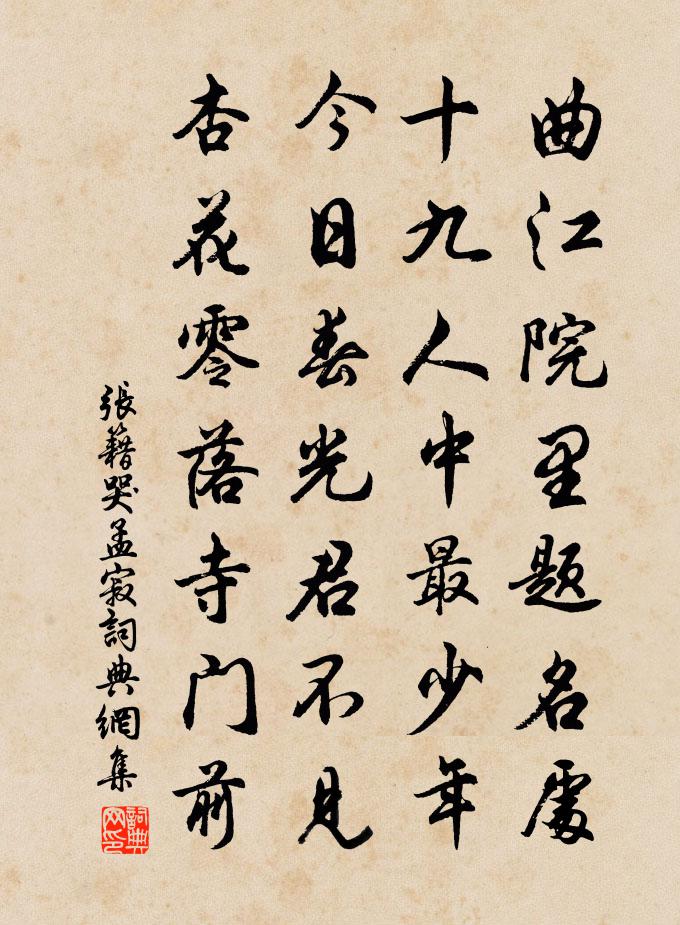 曲江院里題名處
十九人中最少年
今日春光君不見
杏花零落寺门前
張籍哭孟寂詞典網集
詞典网印